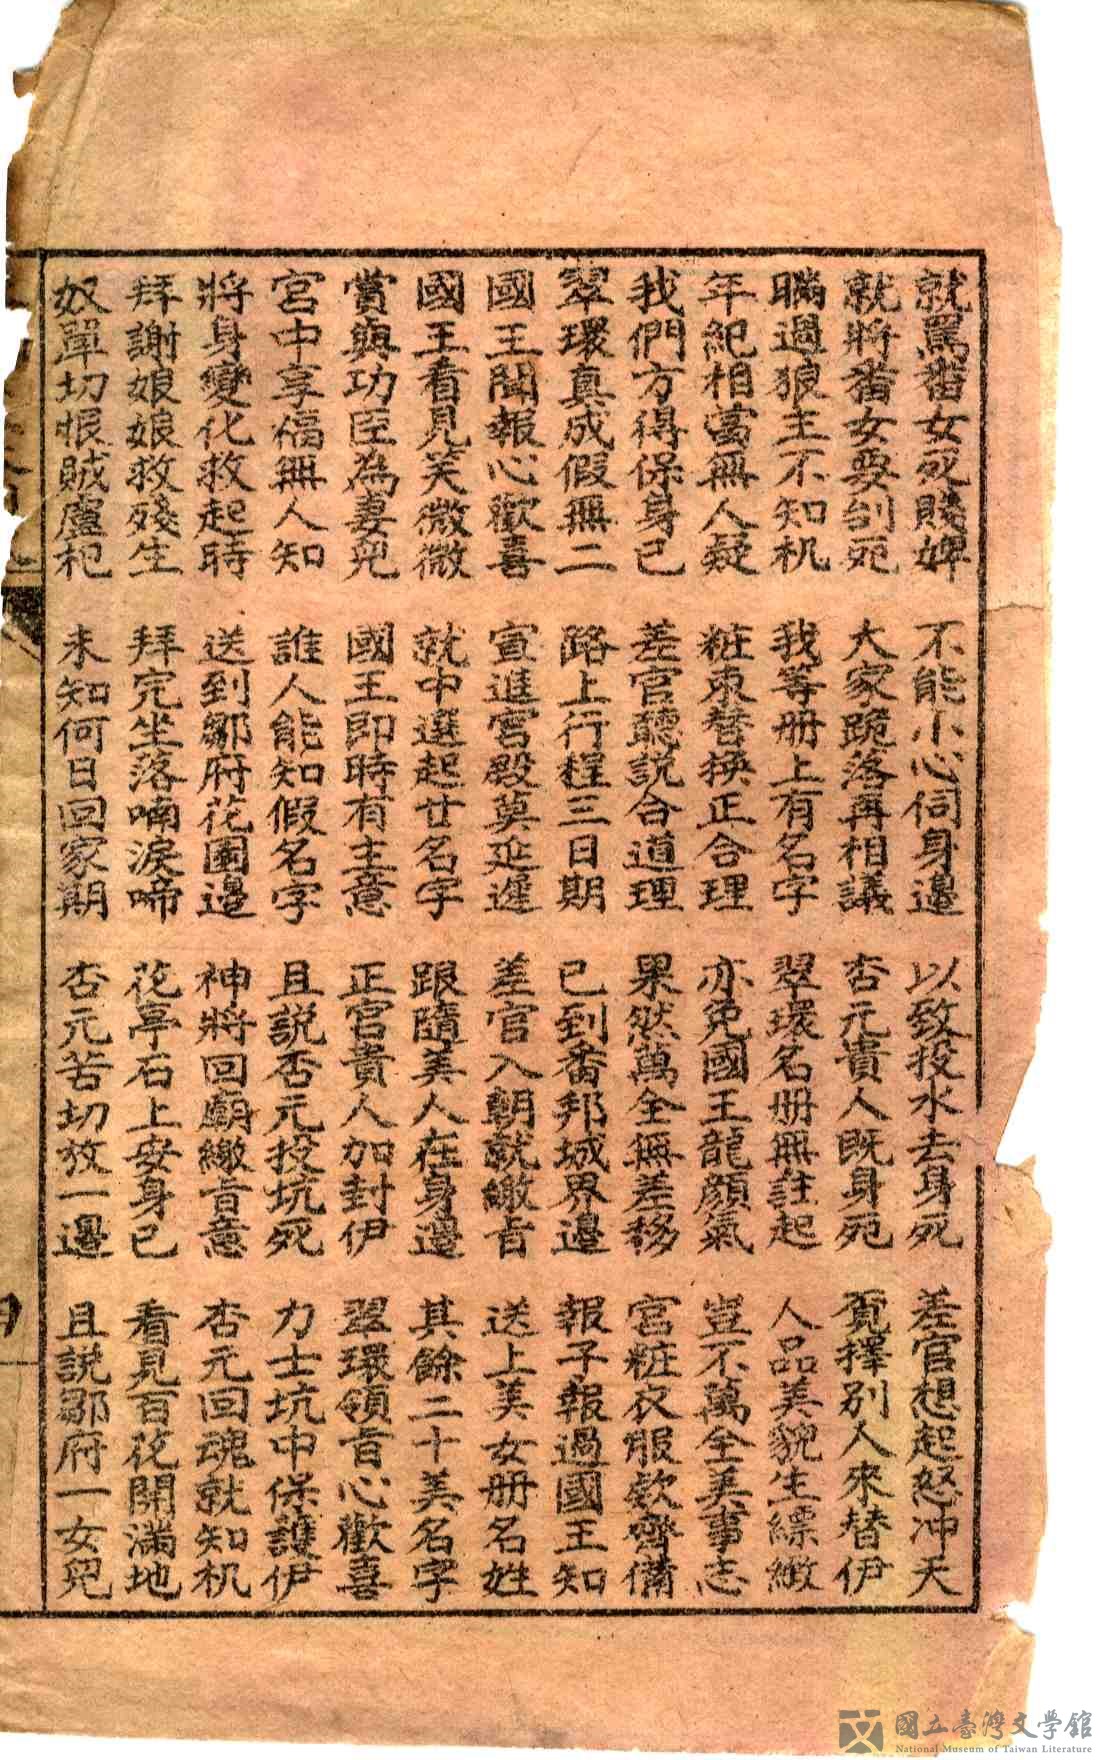 就罵番女死賤婢　不能小心伺身邊　以致投水去身死　差官想起怒冲天
就將番女要刣死　大家跪落再相議　杏元貴人既身死　𡬶擇別人來替伊
瞞過狼王不知机　我等册上有名字　翠環名册無註起　人品美貌生縹緻
年紀相當無人疑　粧束替換正合理　亦免國王龍顏氣　豈不萬全美事志
我們方得保身己　差官聽説合道理　果然萬全無差移　宮粧衣服欵齊備
翠環真成假無二　路上行程三日期　已到番邦城界邊　報子報過國王知
國王聞報心歡喜　宣進宮殿莫延遲　差官入朝就繳旨　送上美女册名姓
國王看見笑微微　就中選起廿名字　跟隨美人在身邊　其餘二十美名字
賞與功臣為妻兒　國王即時有主意　正宮貴人加封伊　翠環領旨心歡喜
宮中享福無人知　誰人能知假名字　且説杏元投坑死　力士坑中保護伊
將身變化救起時　送到鄒府花園邊　神將回廟繳旨意　杏元回魂就知机
拜謝娘娘救殘生　拜完坐落喃淚啼　花亭石上安身己　看見百花開滿地
奴單切恨賊盧杞　未知何日回家期　杏元苦切放一邊　且説鄒府一女兒
國立臺灣文學館
National Museum of Taiwan Literature